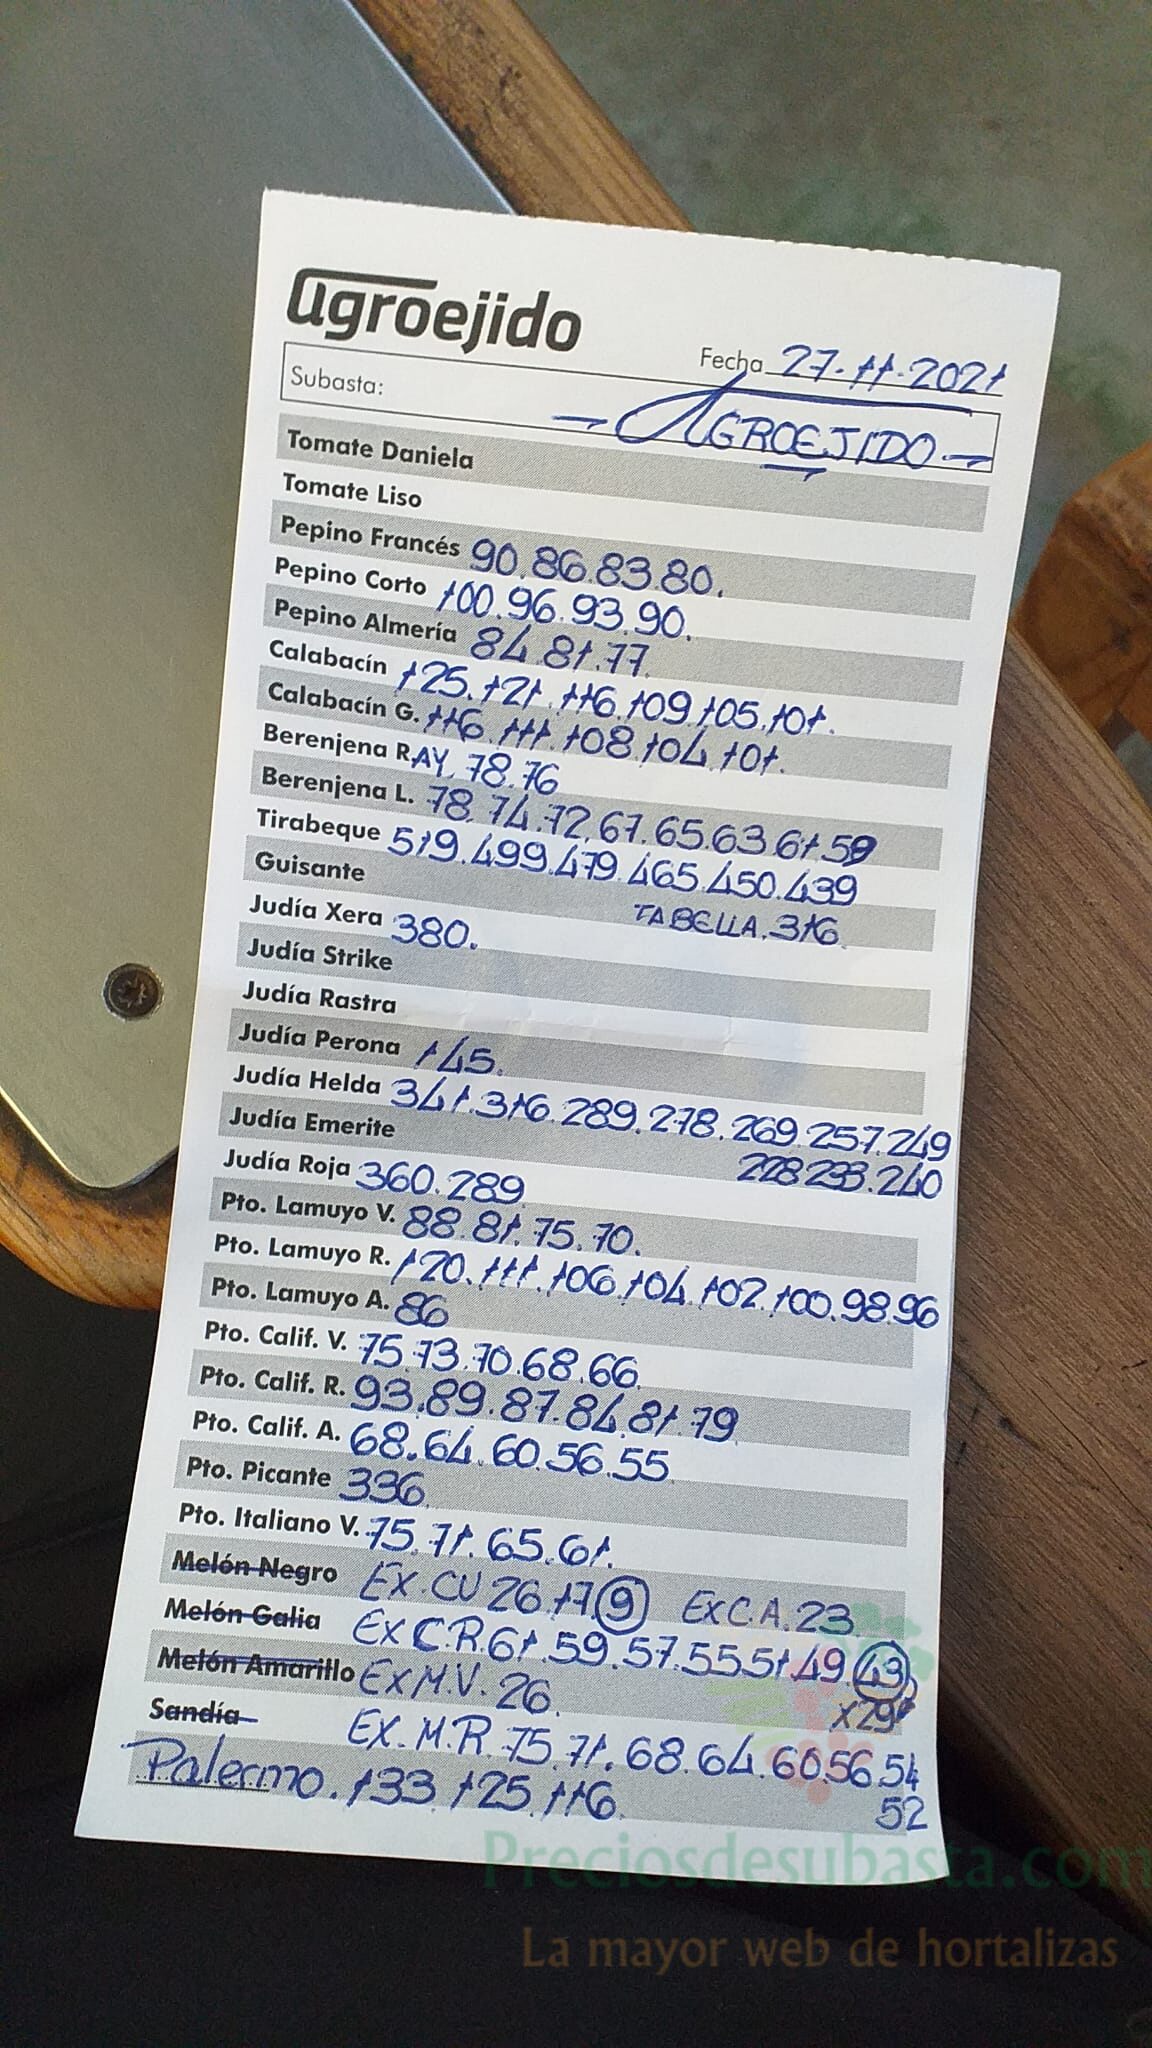 agroejido
Fecha 27-11-2021
Subasta: - AGROEJIDO -
Tomate Daniela
Tomate Liso
Pepino Francés 90.86.83.80.
Pepino Corto 100.96.93.90.
Pepino Almería 84.81.77.
Calabacín 125.121.116.109.105.101.
Calabacín G. 116.111.108.104.101.
Berenjena RAY. 78.76
Berenjena L. 78.74.72.67.65.63.61.59
Tirabeque 519.499.479.465.450.439
Guisante TABELLA.316.
Judía Xera 380.
Judía Strike
Judía Rastra
Judía Perona 145.
Judía Helda 341.316.289.278.269.257.249
Judía Emerite 228.233.240
Judía Roja 360.289
Pto. Lamuyo V. 88.81.75.70.
Pto. Lamuyo R. 120.111.106.104.102.100.98.96
Pto. Lamuyo A. 86
Pto. Calif. V. 75.73.70.68.66.
Pto. Calif. R. 93.89.87.84.81.79
Pto. Calif. A. 68.64.60.56.55
Pto. Picante 336.
Pto. Italiano V. 75.71.65.61.
Melón Negro EX.CU 26.17.9 EXC.A.23.
Melón Galia EXC.R.61.59.57.55.51.49.43
Melón Amarillo EXM.V.26. X29
Sandía EX.M.R.75.71.68.64.60.56.54
Palermo.133.125.116. 52
Preciosdesubasta.com
La mayor web de hortalizas